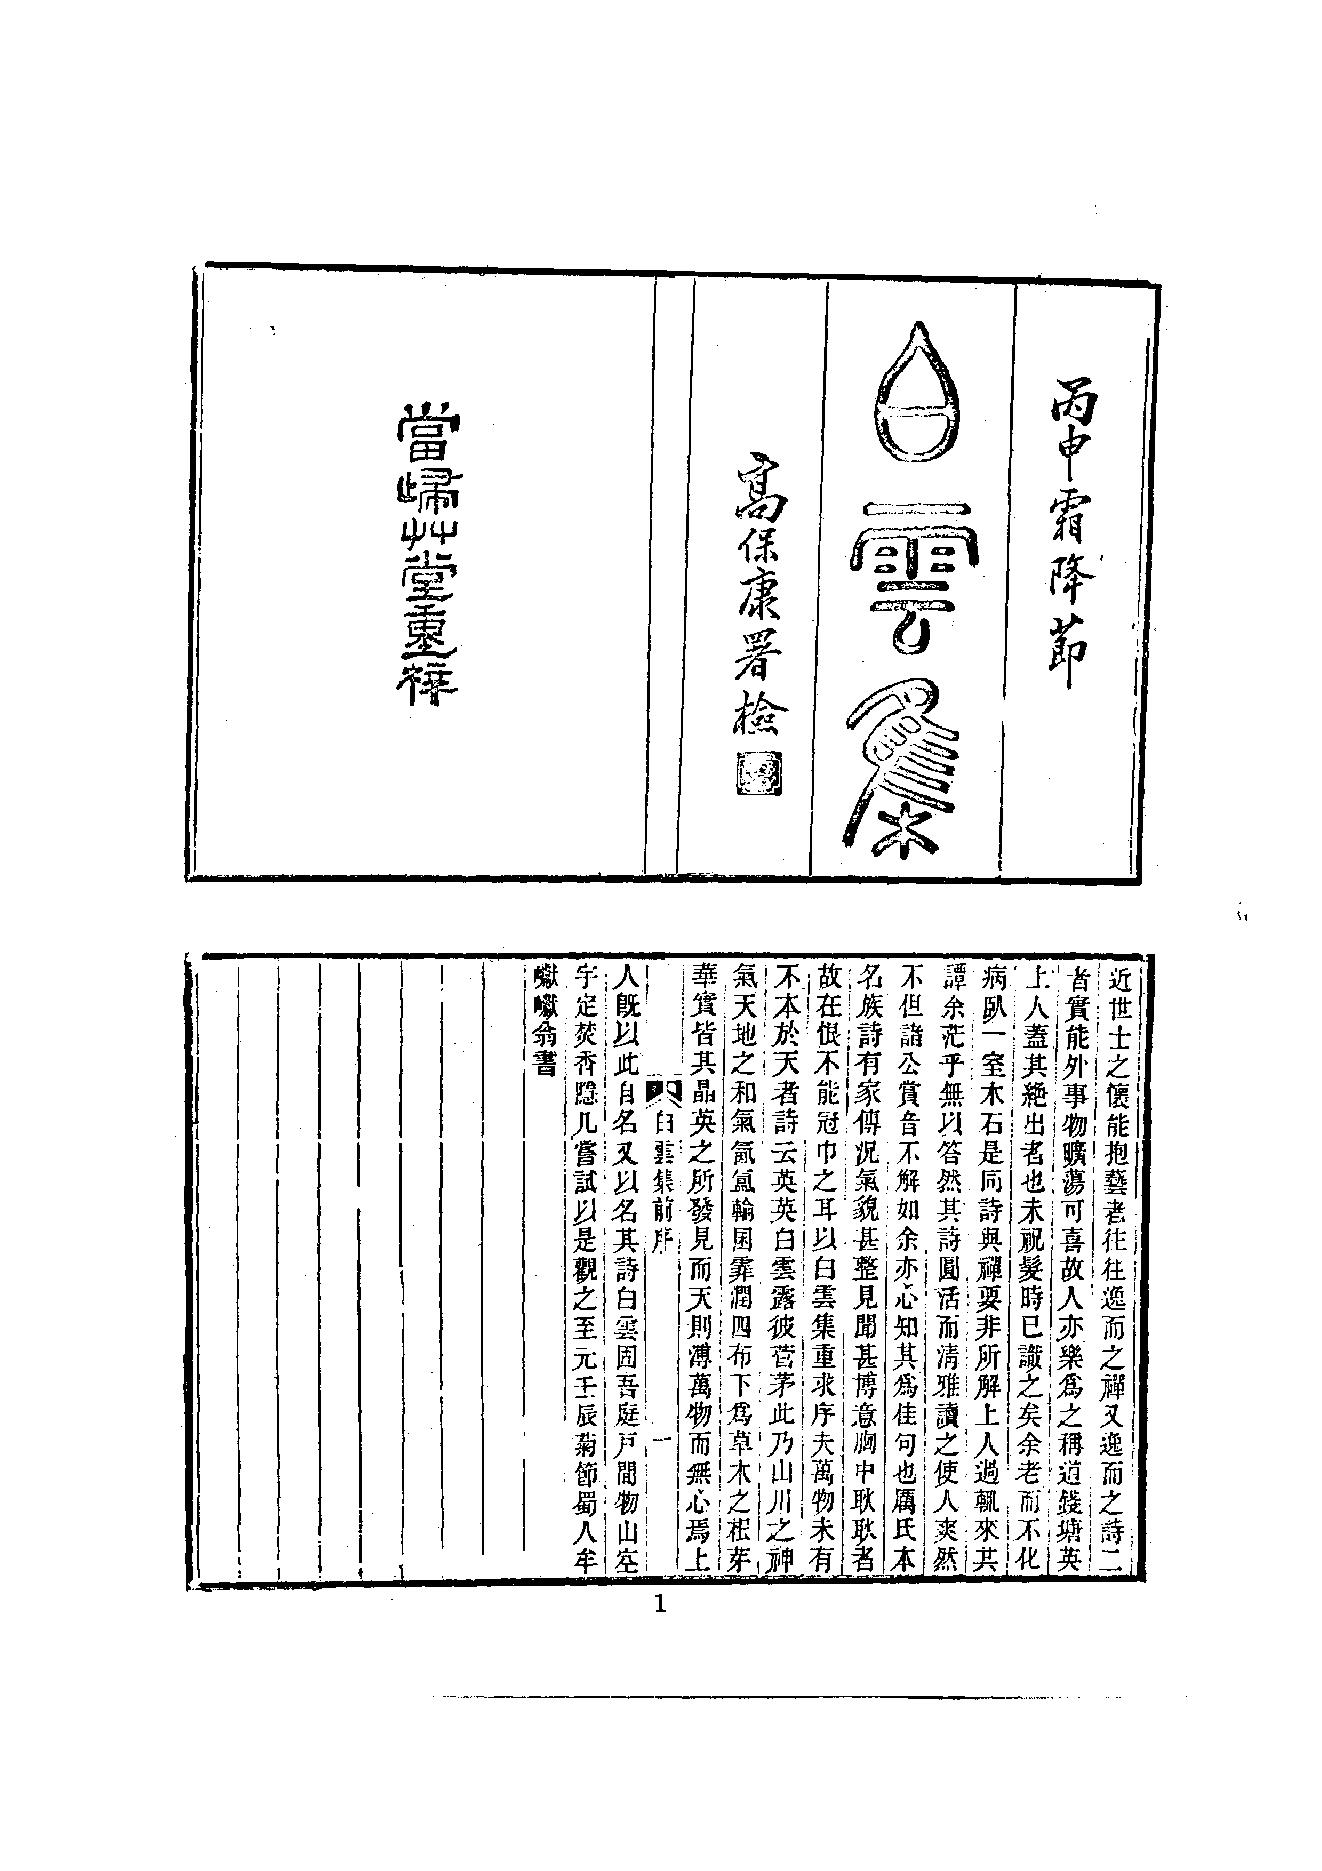 丙申霜降節
白雲集
高保康署檢
當歸艸堂重梓
近世士之懷能抱藝者往往逸而之禪又逸而之詩二
者實能外事物曠蕩可喜故人亦樂爲之稱道錢塘英
上人蓋其絶出者也未祝髮時已識之矣余老而不化
病臥一室木石是同詩與禪要非所解上人過輒來其
譚余茫乎無以答然其詩圓活而淸雅讀之使人爽然
不但諸公賞音不解如余亦心知其爲佳句也厲氏本
名族詩有家傳況氣貌甚整見聞甚博意胸中耿耿者
故在恨不能冠巾之耳以白雲集重求序夫萬物未有
不本於天者詩云英英白雲露彼菅茅此乃山川之神
氣天地之和氣氤氳輪囷霏潤四布下爲草木之根芽
華實皆其晶英之所發見而天則溥萬物而無心焉上
白雲集前序
一
人旣以此自名又以名其詩白雲固吾庭戶間物山空
宇定焚香隱几嘗試以是觀之至元壬辰菊節蜀人牟
巘巘翁書
1